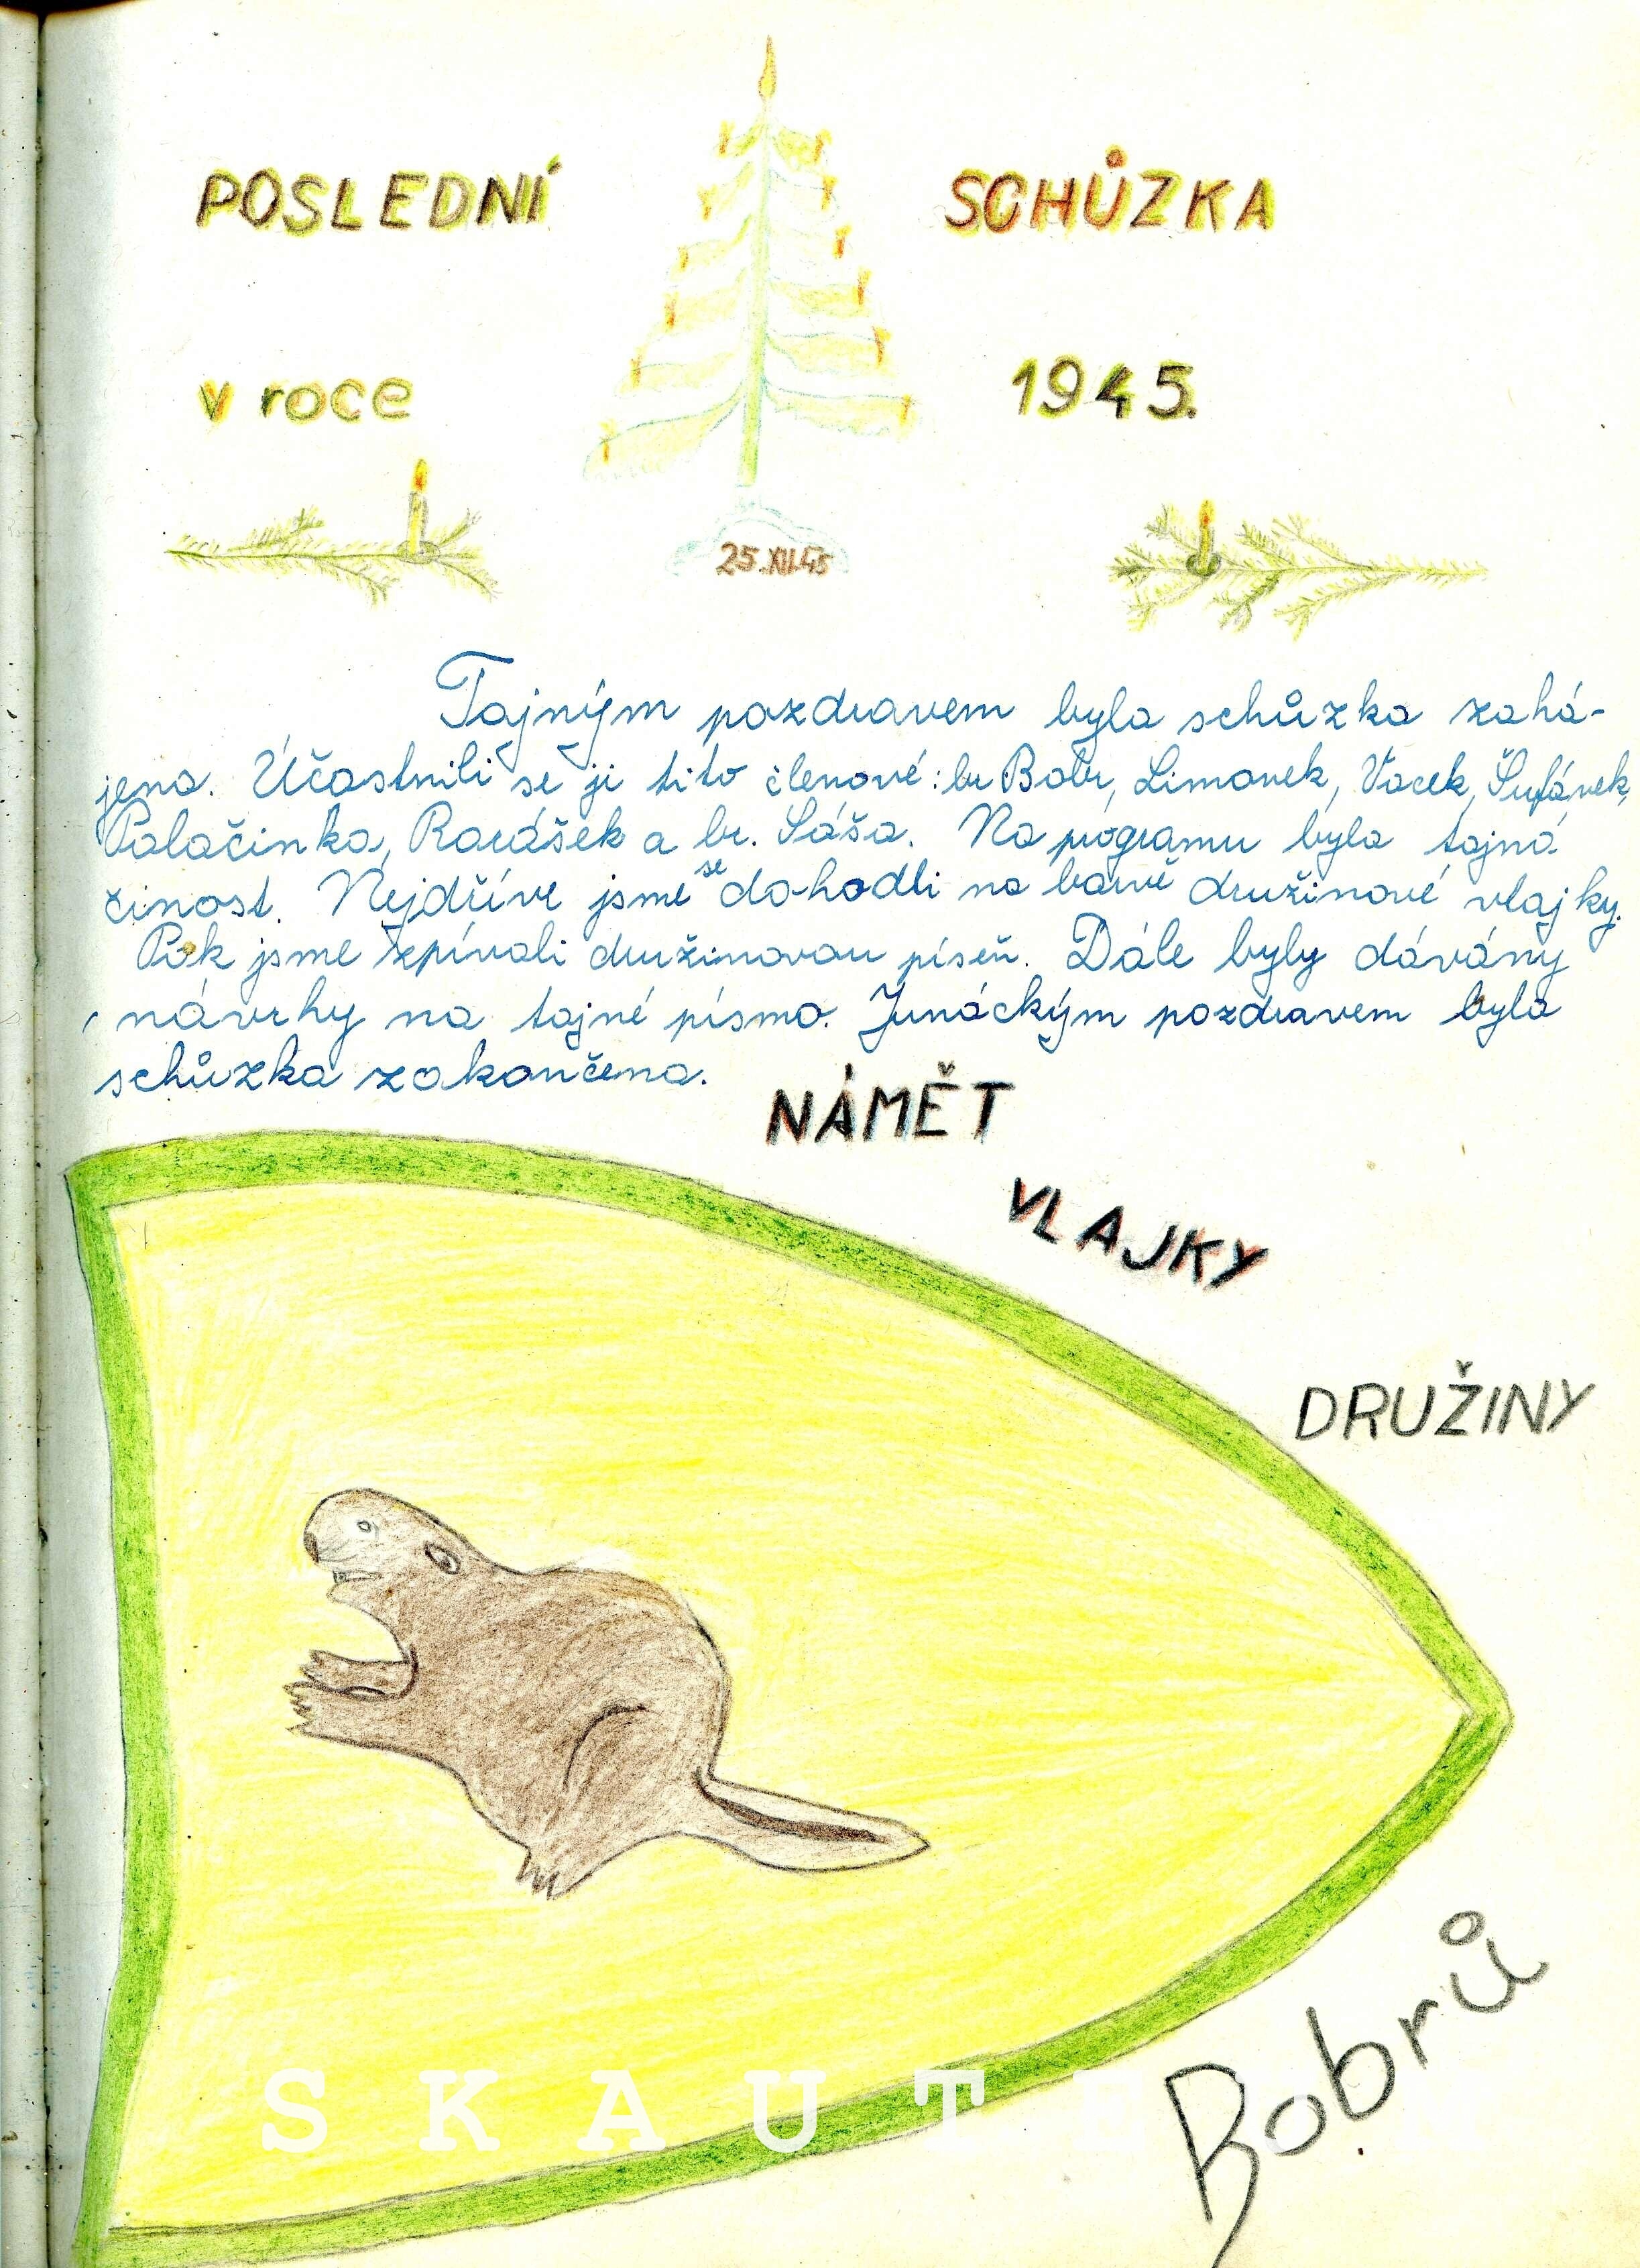 POSLEDNÍ SCHŮZKA
v roce 1945.
25.XII.45
Tajným pozdravem byla schůzka zahá-
jena. Účastnili se jí tito členové: br Bobr, Limonek, Vacek, Šufánek,
Palačinka, Rarášek a br. Sáša. Na programu byla tajná
činost. Nejdříve jsme se dohodli na barvě družinové vlajky.
Pak jsme zpívali družinovou píseň. Dále byly dávány
návrhy na tajné písmo. Junáckým pozdravem byla
schůzka zakončena.
NÁMĚT
VLAJKY
DRUŽINY
Bobrů
SKAUT